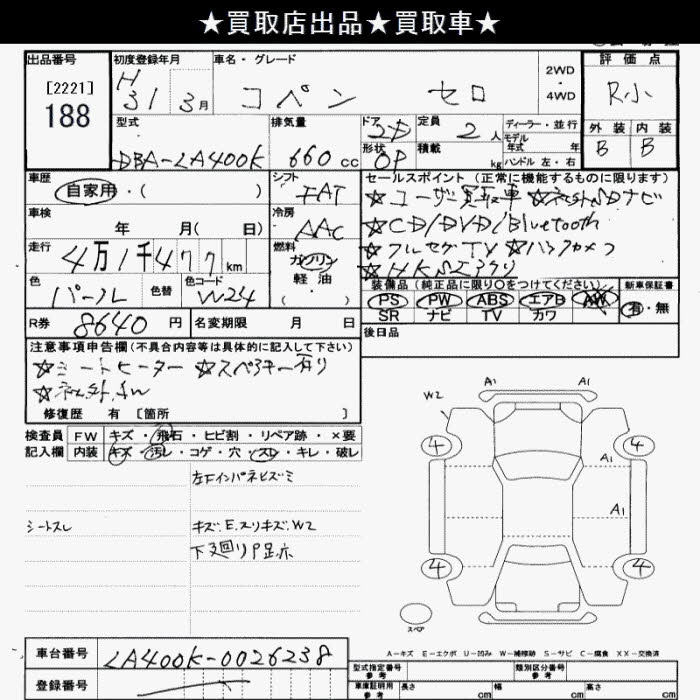 ★買取店出品★買取車★
出品番号
[2221]
188
初度登録年月
H 31年 3月
車名・グレード
コペン セロ
2WD
4WD
評価点
R小
外装 内装
B B
型式
DBA-LA400K
排気量
660 cc
ドア
2D
形状
OP
定員
2 人
積載
kg
ディーラー・並行
モデル年式 年
ハンドル 左・右
車歴
自家用・( )
シフト
FAT
車検
年 月( 日)
冷房
AAC
走行
4万1千477 km
燃料
ガソリン
軽油
( )
色
パール
色替
色コード
W24
R券 8640 円
名変期限 月 日
セールスポイント (正常に機能するものに限ります)
★ユーザー買取車 ★社外SDナビ
★CD/DVD/Bluetooth
★フルセグTV ★バックカメラ
★HKSエアクリ
装備品 (純正品に限り〇をつけてください)
PS PW ABS エアB AW
SR ナビ TV カワ
新車保証書
有・無
後日品
注意事項申告欄(不具合内容等は具体的に記入して下さい)
★シートヒーター ★スペアキー有り
★社外AW
修復歴 有 [箇所 ]
検査員
記入欄
FW キズ・飛石・ヒビ割・リペア跡・×要
内装 キズ・汚レ・コゲ・穴・スレ・キレ・破レ
左Fインパネビズミ
シートスレ
キズ.E.スリキズ.W2
下廻りP足赤
W2
A1
A1
4
4
A1
A1
4
4
スペア
A-キズ E-エクボ U-凹み W-補修跡 S-サビ C-腐食 XX-交換済
車台番号
LA400K-0026238
登録番号
型式指定番号
参考
類別区分番号
参考
車庫証明用
参考
長さ cm
幅 cm
高さ cm